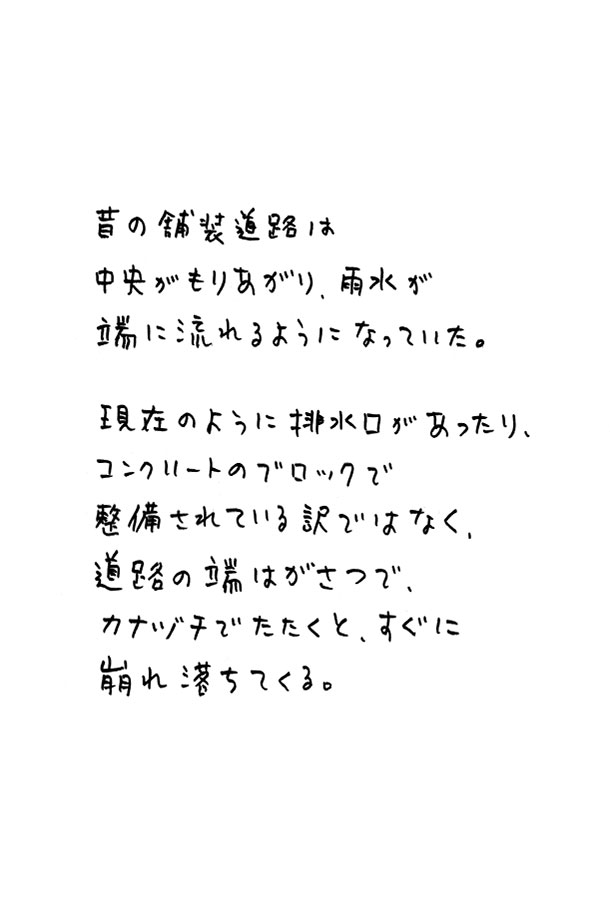 昔の舗装道路は
中央がもりあがり、雨水が
端に流れるようになっていた。
現在のように排水口があったり、
コンクリートのブロックで
整備されている訳ではなく、
道路の端はがさつで、
カナヅチでたたくと、すぐに
崩れ落ちてくる。